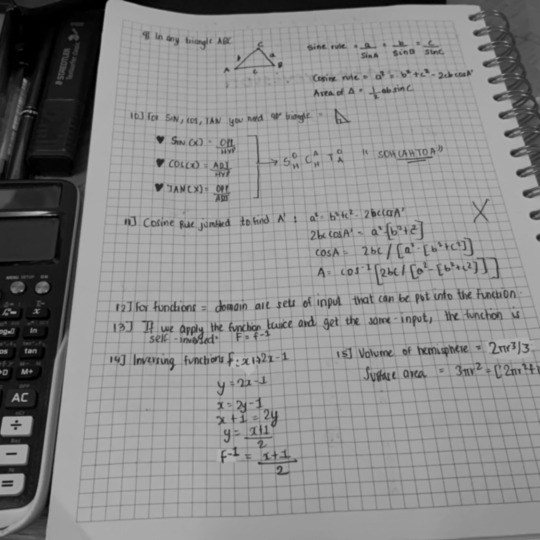 9] In any triangle ABC
C
b a
A c B
Sine rule = a/SinA = b/SinB = c/SinC
Cosine rule = a² = b² + c² - 2cb cosA
Area of Δ = 1/2 ab sinC
10] For SIN, COS, TAN you need 90° triangle =
♥ SIN (X) = OPP/HYP
♥ COS(X) = ADJ/HYP
♥ TAN(X) = OPP/ADJ
→ S O/H C A/H T O/A "SOHCAHTOA"
11] Cosine Rule jumbled to find A' : a² = b²+c² - 2bc cosA'
2bc cosA' = a² - [b²+c²]
cosA = 2bc / [a² - [b²+c²]]
A = cos⁻¹ [2bc / [a² - [b²+c²]]]
X
12] For functions = domain are sets of input that can be put into the function.
13] If we apply the function twice and get the same input, the function is
self-inversed. F = F⁻¹
14] Inversing functions f: x→2x-1
y = 2x-1
x = 2y-1
x+1 = 2y
y = x+1/2
F⁻¹ = x+1/2
15] Volume of hemisphere = 2πr³/3
Surface area = 3πr² = [2πr²+
STAEDTLER
MODE
x
ln
cos tan
M+
AC
÷
−
=